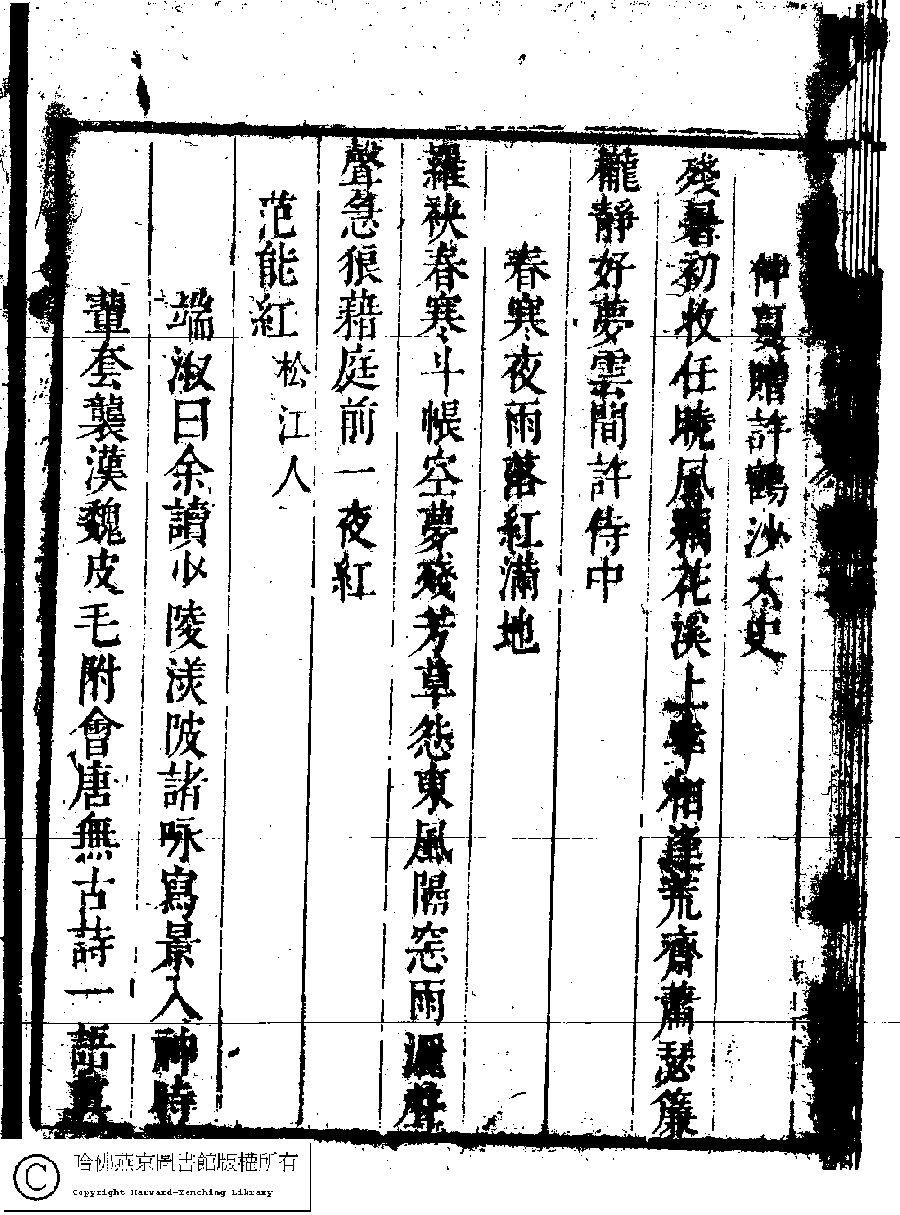 仲夏贈許鶴沙太史
殘暑初收任曉風稱花溪上幸相逢荒齋蕭瑟簾
櫳靜好夢雲間許侍中
春寒夜雨落紅滿地
羅袂春寒斗帳空夢殘芳草怨東風隔窓雨灑聲
聲急狼藉庭前一夜紅
范能紅松江人
端淑曰余讀少陵渼陂諸咏寫景入神時
輩套襲漢魏皮毛附會唐無古詩一語眞
哈佛燕京圖書館版權所有
Copyright Harvard-Yenching Library